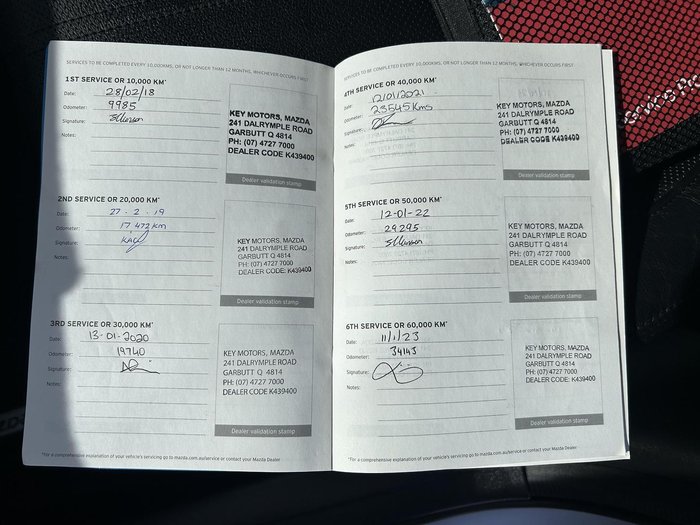 SERVICES TO BE COMPLETED EVERY 10,000KMS, OR NOT LONGER THAN 12 MONTHS, WHICHEVER OCCURS FIRST
1ST SERVICE OR 10,000 KM*
Date: 28/02/18
Odometer: 9985
Signature:
Notes:
KEY MOTORS, MAZDA
241 DALRYMPLE ROAD
GARBUTT Q 4814
PH: (07) 4727 7000
DEALER CODE K439400
Dealer validation stamp
2ND SERVICE OR 20,000 KM*
Date: 27-2-19
Odometer: 17 472 km
Signature:
Notes:
KEY MOTORS, MAZDA
241 DALRYMPLE ROAD
GARBUTT Q 4814
PH: (07) 4727 7000
DEALER CODE: K439400
Dealer validation stamp
3RD SERVICE OR 30,000 KM*
Date: 13-01-2020
Odometer: 19740
Signature:
Notes:
KEY MOTORS, MAZDA
241 DALRYMPLE ROAD
GARBUTT Q 4814
PH: (07) 4727 7000
DEALER CODE K439400
Dealer validation stamp
*For a comprehensive explanation of your vehicle's servicing go to mazda.com.au/service or contact your Mazda Dealer.
SERVICES TO BE COMPLETED EVERY 10,000KMS, OR NOT LONGER THAN 12 MONTHS, WHICHEVER OCCURS FIRST
4TH SERVICE OR 40,000 KM*
Date: 12/01/2021
Odometer: 23545 Kms
Signature:
Notes:
KEY MOTORS, MAZDA
241 DALRYMPLE ROAD
GARBUTT Q 4814
PH: (07) 4727 7000
DEALER CODE K439400
Dealer validation stamp
5TH SERVICE OR 50,000 KM*
Date: 12-01-22
Odometer: 29295
Signature:
Notes:
KEY MOTORS, MAZDA
241 DALRYMPLE ROAD
GARBUTT Q 4814
PH: (07) 4727 7000
DEALER CODE: K439400
Dealer validation stamp
6TH SERVICE OR 60,000 KM*
Date: 11/1/23
Odometer: 34143
Signature:
Notes:
KEY MOTORS, MAZDA
241 DALRYMPLE ROAD
GARBUTT Q 4814
PH: (07) 4727 7000
DEALER CODE: K439400
Dealer validation stamp
*For a comprehensive explanation of your vehicle's servicing go to mazda.com.au/service or contact your Mazda Dealer.